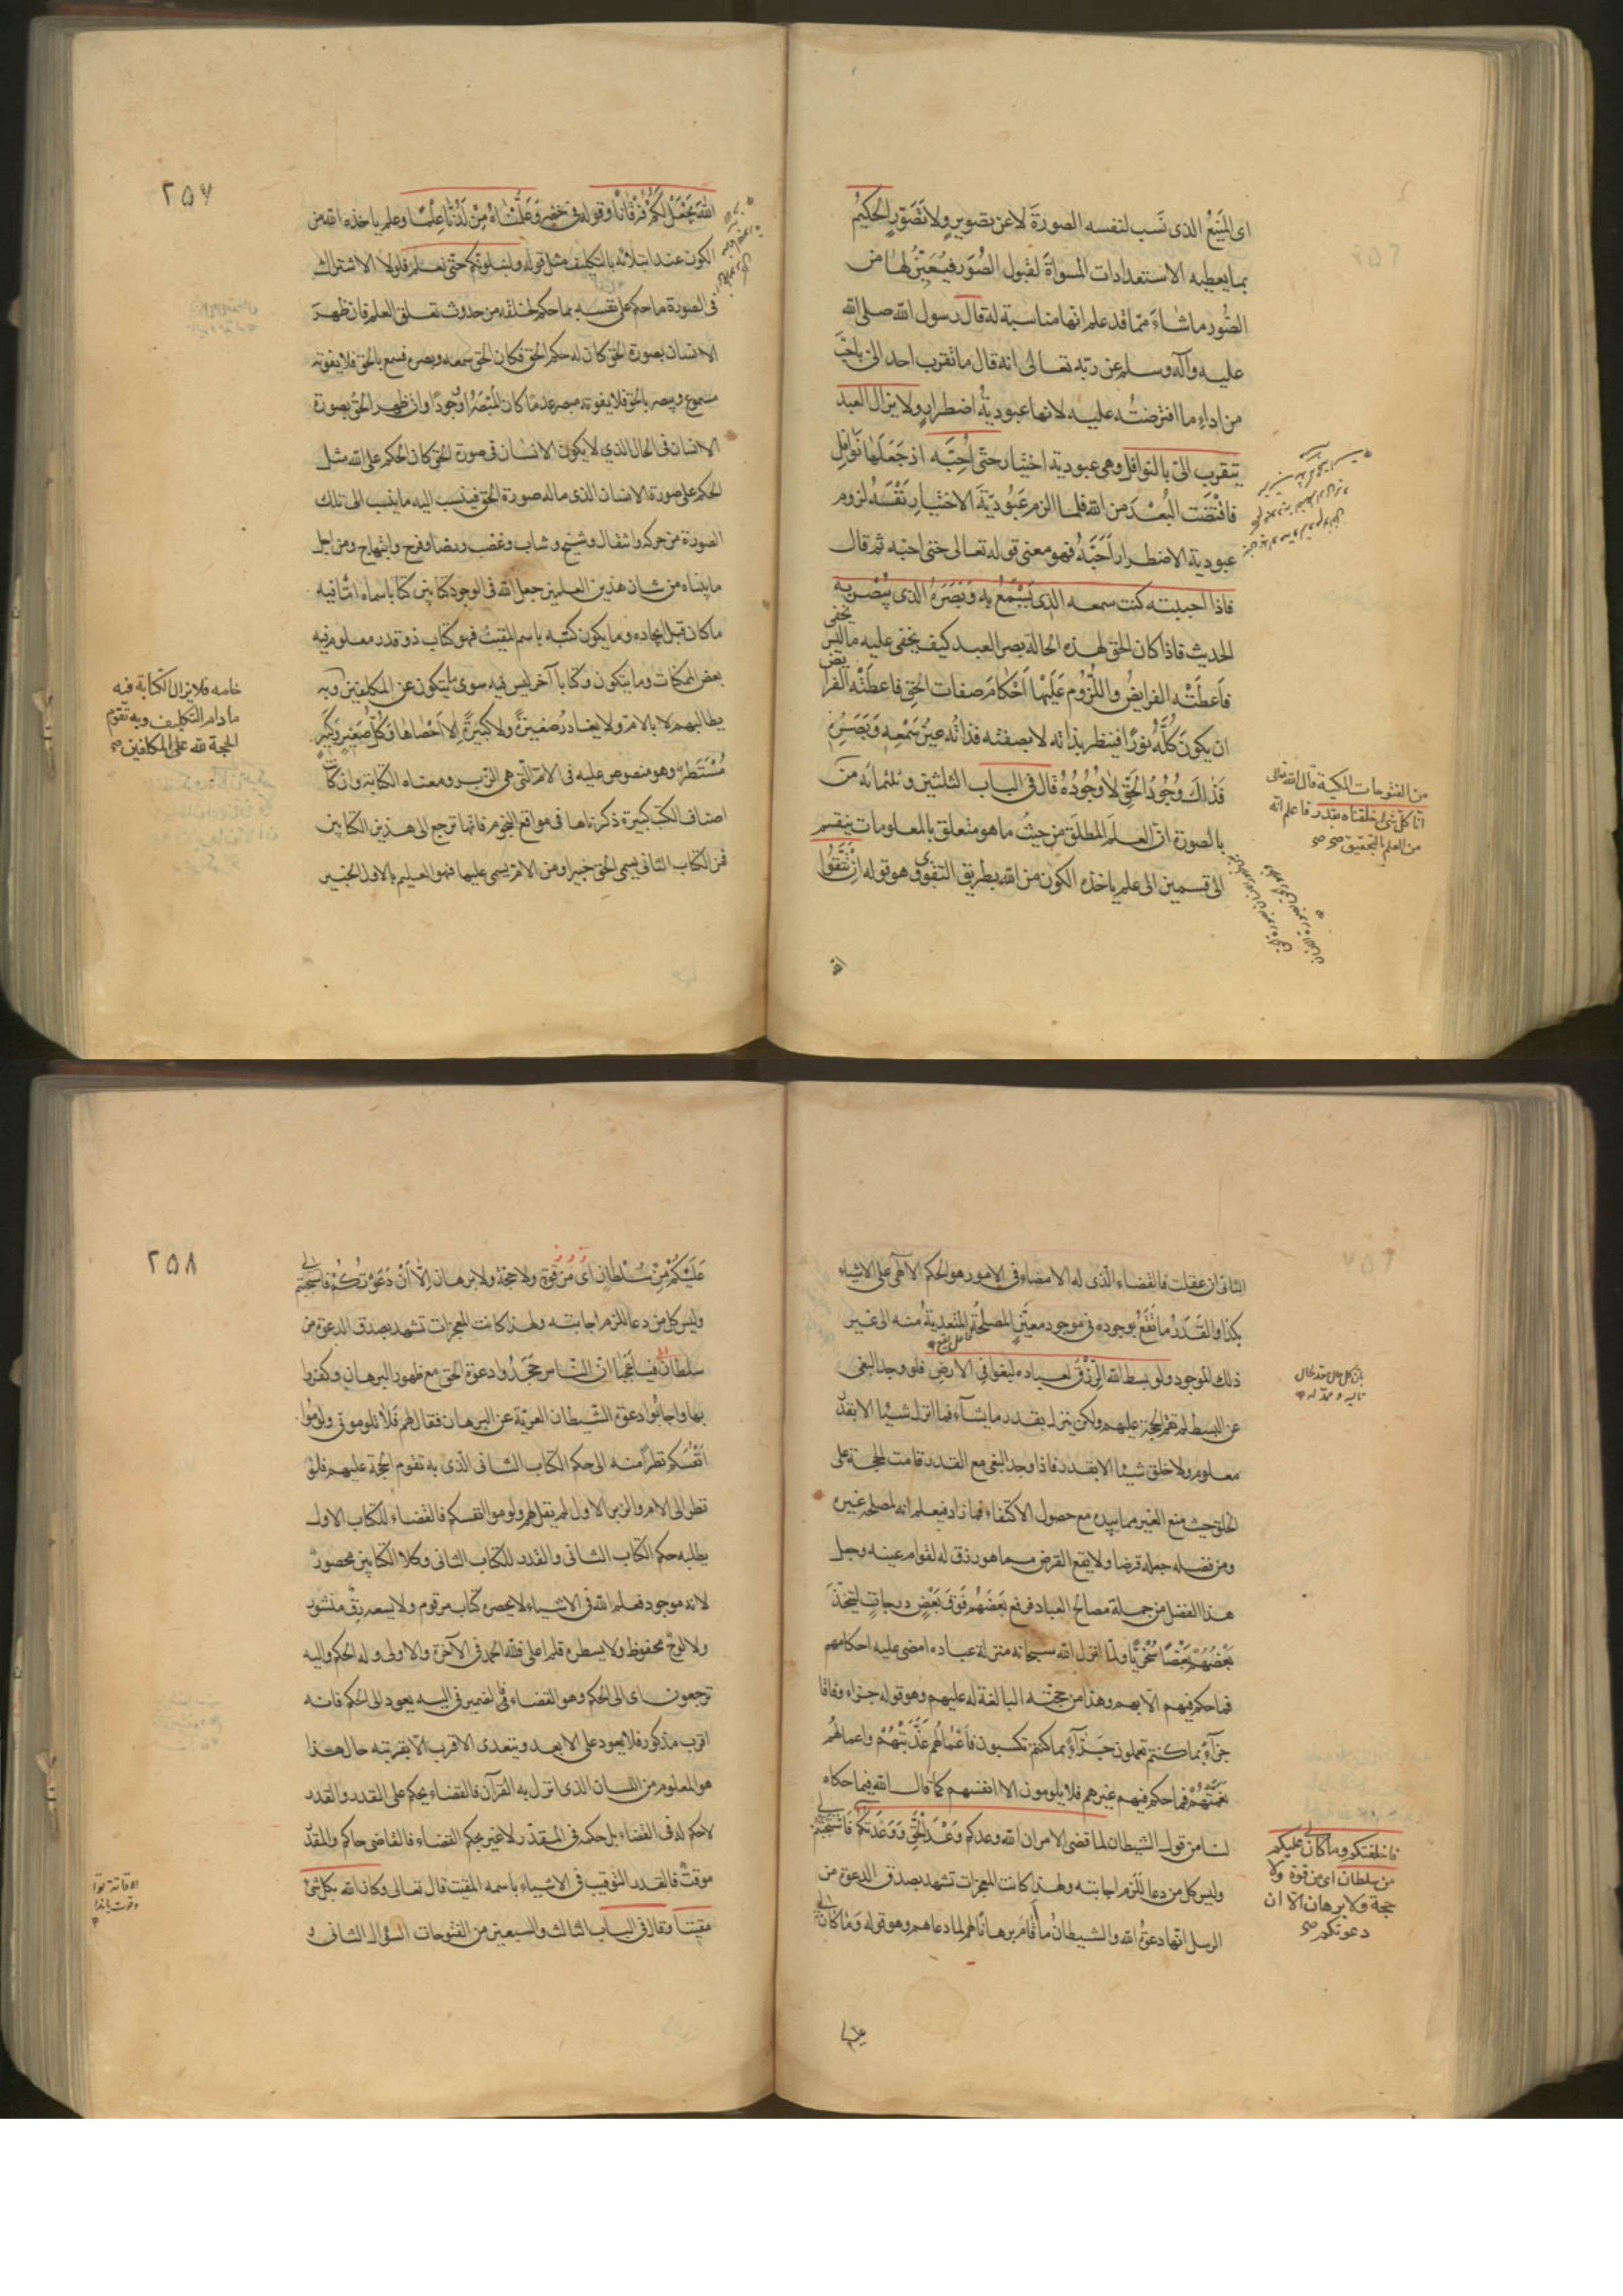 اى المَنيعُ الذى نَسب لنفسه الصورةَ لا عن تصويرٍ ولا تَصَوّرٍ الحكيمُ
بما يعطيه الاستعدادات المسواة لقبول الصُّوَر فيُعَيِّنُ لها من
الصُّور ما شاءَ مما قد علم انها مناسبة له قال رسول الله صلى الله
عليه وآله وسلم عن ربّه تعالى انه قال ما تقرب احد الىّ باحبّ
من اداءِ ما افترضتُه عليه لانها عبوديّةُ اضطرارٍ ولا يزال العبد
يتقرب الىّ بالنوافل وهى عبودية اختيار حتى اُحِبّه اذ جَعَلَها نَوافِل
فاقتضت البُعْدَ من الله فلما الزم عَبُوديّةَ الاختيارِ نَفْسَهُ لزوم
عبودية الاضطرار اَحَبَّهُ فهو معنى قوله تعالى حتى احبّه ثم قال
فاذا احببته كنت سمعه الذى يَسْمَعُ به وَبَصَرَهُ الذى يُبْصِر به
الحديث فاذا كان الحق لهذه الحالة بصر العبد كيف يخفى عليه ما ليس يخفى
فاَعطَتْه الفرايضُ واللّزُوم عَلَيْها اَحْكامَ صفات الحق فاعطَتْه الفرايض
ان يكون كُلّهُ نورًا فينظر بذاته لا بصفته فذاتُه عينُ سَمْعِه وَبَصَرِهِ
فذاكَ وُجُودُ الحَقِّ لا وُجُودُهُ قال فى الباب الثلثين وثلثمائه من
من الفتوحات المكية قال الله تعالى
انا كل شئ خلقناه بقدر فاعلم انه
من العلم التحقيق صح صح
بالصورة انّ العلم المطلَق من حيثُ ما هو متعلق بالمعلومات ينقسم
الى قسمين الى علم ياخذه الكون من الله بطريق التقوى وهو قوله اِنْ تَتَّقُوا
الله
٢٥٧
اللهَ يَجْعَلْ لَكُمْ فُرْقانًا وقوله فى خضر وَعَلَّمْناهُ مِنْ لَدُنّا عِلْمًا وعلم ياخذه الله من
الكون عند ابتلائه بالتكليف مثل قوله ولنبلونكم حتى نعلم فلولا الاشتراك
فى الصورة ما حكم على نفسه بما حكم لخلقه من حدوث تعلق العلم فان ظهر
الانسان بصورة الحق كان له حكم الحق فكان الحق سمعه وبصره فسمع بالحق فلا يفوته
مسموع ويبصر بالحق فلا يفوته مبصر عدمًا كان المُبْصَرُ او وُجودًا وان ظهر الحقُّ بصورة
الانسان فى الحال الذي لا يكون الانسان فى صورة الحق كان الحكم على الله مثل
الحكم على صورة الانسان الذى ماله صورة الحق فينسب اليه ما ينسب الى تلك
الصورة من حركة وانتقال وشيخ وشاب وغضب ورضا وفرح وابتهاج ومن اجل
ما بيناه من شان هذين العلمين جعل الله فى الوجود كتابين كتابا سماه امّا فيه
ما كان قبل ايجاده وما يكون كتبه باسم المقيت فهو كتاب ذو قدر معلوم فيه
بعض الممكنات وما يتكون وكتابا آخر ليس فيه سوى ما يتكون عن المكلفين وبه
خاصه فلا يزال الكتابة فيه
ما دام التكليف وبه تقوم
الحجة لله على المكلفين صح
يطالبهم لا بالام ولا يغادرُ صغيرَةً ولا كبيرَةً اِلّا اَحْصاها وَكُلُّ صَغيرٍ وَكَبيرٍ
مُسْتَطَرٌ وهو منصوص عليه فى الام الّتى هى الزبر ومعناه الكتابة وان كانت
اصناف الكتب كثيرة ذكرناها فى مواقع النجوم فانها ترجع الى هذين الكتابين
فمن الكتاب الثانى يسمى الحق خبيرا ومن الام يسمى عليما فهو العليم بالاول الخبير
الثانى ان عقلت فالقضاء الّذى له الامضاء فى الامور هو الحكم الالٰهى على الاشياء
بكذا والقَدَرُ ما يَقَعُ بوجوده فى موجود معيَّنٍ المصلحَةُ المتعديةُ منه الى غير
ذلك الموجود ولو بسط الله الرِّزْقَ لعباده لبغوا في الارض فلو وجد البغى
عن البسط لم تقم الحجة عليهم ولكن ينزل بقدر ما يشآء فما انزل شيئا الا بقدر
معلوم ولا خلق شيئا الا بقدر فاذا وجد البغى مع القدر قامت الحجة على
الخلق حيث منع الغير مما بيده مع حصول الاكتفاء فما زاد فيعلم انه لمصلحة غيره
ومن فضله جعله قرضا ولا يقع القرض مما هو رزق له لقوام عينه وجعل
هذا الفضل من جملة مصالح العباد فرفع بَعْضَهُم فَوْقَ بَعْضٍ درجاتٍ ليتخذَ
بَعْضُهُمْ بَعْضًا سُخْرِيًّا ولما انزل الله سبحانه منزلة عباده امضى عليه احكامهم
فما حكم فيهم الا بهم وهذا من حجته البالغة له عليهم وهو قوله جزاء وفاقا
جزآءً بما كنتم تعملون جَزآءً بما كنتم تكسبون فاَعْمالُهُم عَذَّبَتْهُمْ واعمالهُم
نَعَّمَتْهُمْ فما حكم فيهم غيرهم فلا يلومون الا انفسهم كما قال الله فيما حكاه
لنا من قول الشيطان لما قضى الامر ان الله وعدكم وَعْدَ الحَقِّ وَوَعَدتكم فَاسْتَجَبْتُمْ لى
فاخلفتكم وما كان لى عليكم
من سلطان اى من قوة ولا
حجة ولا برهان الّا ان
دعوتكم صح
وليس كل من دعا تلزم اجابته ولهذا كانت المعجزات تشهد بصدق الدعوة من
الرسل انها دعوةُ الله والشيطانُ ما اَقامَ برهانًا لهم لما دعاهم وهو قوله وَما كانَ لى
عليكم
٢٥٨
عَلَيْكُمْ مِنْ سُلْطانٍ اى من قوة ولا حجة ولا برهان اِلّا اَنْ دَعَوْتُكُمْ فاسْتَجَبْتُمْ لى
وليس كل من دعا تلزم اجابته ولهذا كانت المعجزات تشهد بصدق الدعوة من
سلطان فيا عَجَبًا انّ النّاس جَحَدُوا دعوة الحق مع ظهور البرهان وكفروا
بها واجابُوا دعوة الشّيطان العريّة عن البرهان فقال لهم فَلا تلومونى ولُومُوا
اَنْفُسَكم نظرًا منه الى حكم الكتاب الثانى الّذى به تقوم الحجة عليهم فلو
نظر الى الام والزبر الاول لم يقل لهم ولوموا انفسكم فالقضاء للكتاب الاول
يطلبه حكم الكتاب الثانى والقدر للكتاب الثانى وكلا الكتابين محصورٌ
لانه موجود فعلم الله فى الاشياء لا يحصره كتاب مرقوم ولا يسعه رقّ منشور
ولا لوحٌ محفوظ ولا يسطره قلم اعلى فلله الحمد فى الآخرة والاولى وله الحكم واليه
ترجعون اى الى الحكم وهو القضاء فالضمير فى اليه يعود الى الحكم فانه
اقرب مذكور فلا يعود على الابعد ويتعدى الاقرب الا بقرينة حال هذا
هو المعلوم من اللسان الذى انزل به القرآن فالقضاء يحكم على القدر والقدر
لا حكم له فى القضاء بل حكمه فى المقدّر لا غير بحكم القضاء فالقاضى حاكم والمقدّر
موقتٌ فالقدر التوقيت فى الاشياء باسمه المقيت قال تعالى وكان الله على كل شئ
مقيتًا وقال فى الباب الثالث والسبعين من الفتوحات السؤال الثانى و